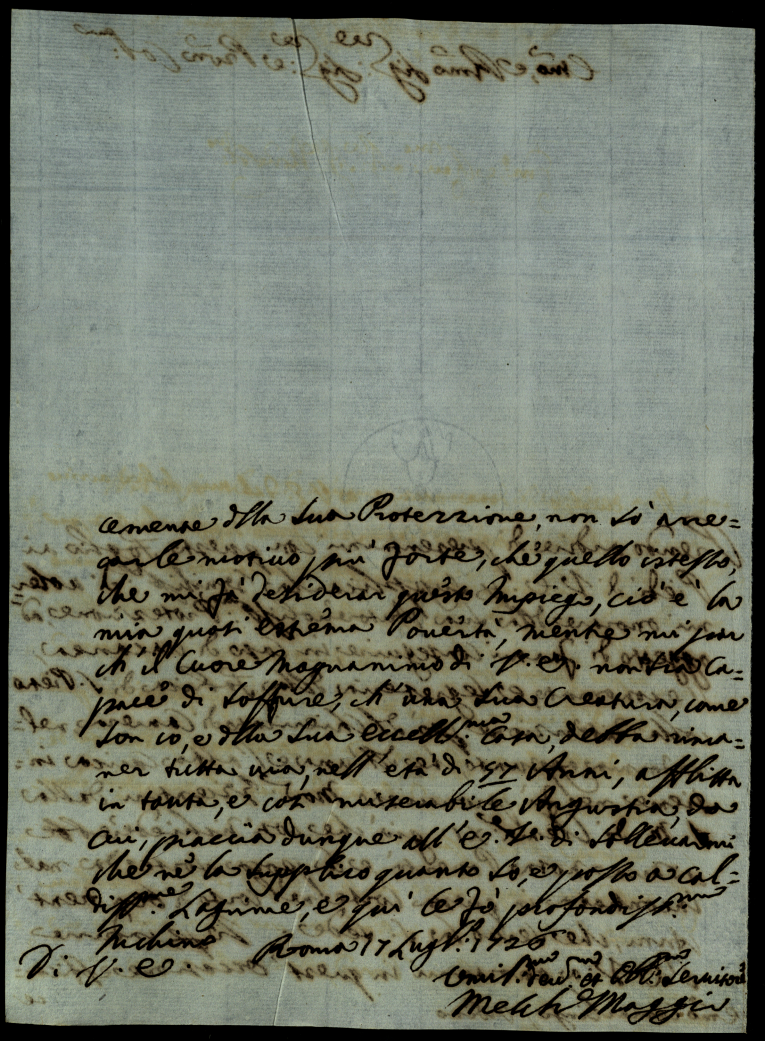 cemente della Sua Protezzione, non sò arre=
carle motivo più forte, che quello istesso,
che mi fà desiderar questo Impiego, ciò è la
mia quasi estrema Povertà, mentre mi par
ch'il Cuore Magnanimo di V. E. non sia Ca=
pace di soffrire, ch'una Sua Creatura, come
son io, e della Sua Eccell.ma Casa, debba rima=
ner tutta via, nell'età di 57 Anni, afflitta
in tanta, e così miserabile Angustia, da
cui, piaccia dunque all'E. V. di Sollevarmi
che nè la Supplico quanto so, e posso a cal=
diss.me Lagrime, e qui le fò profondiss.mo
Inchino Roma 17 Lugl.o 1726
Di V. E
Umil.mo dev.mo et Obl.mo Servitore
Melch.e Maggi